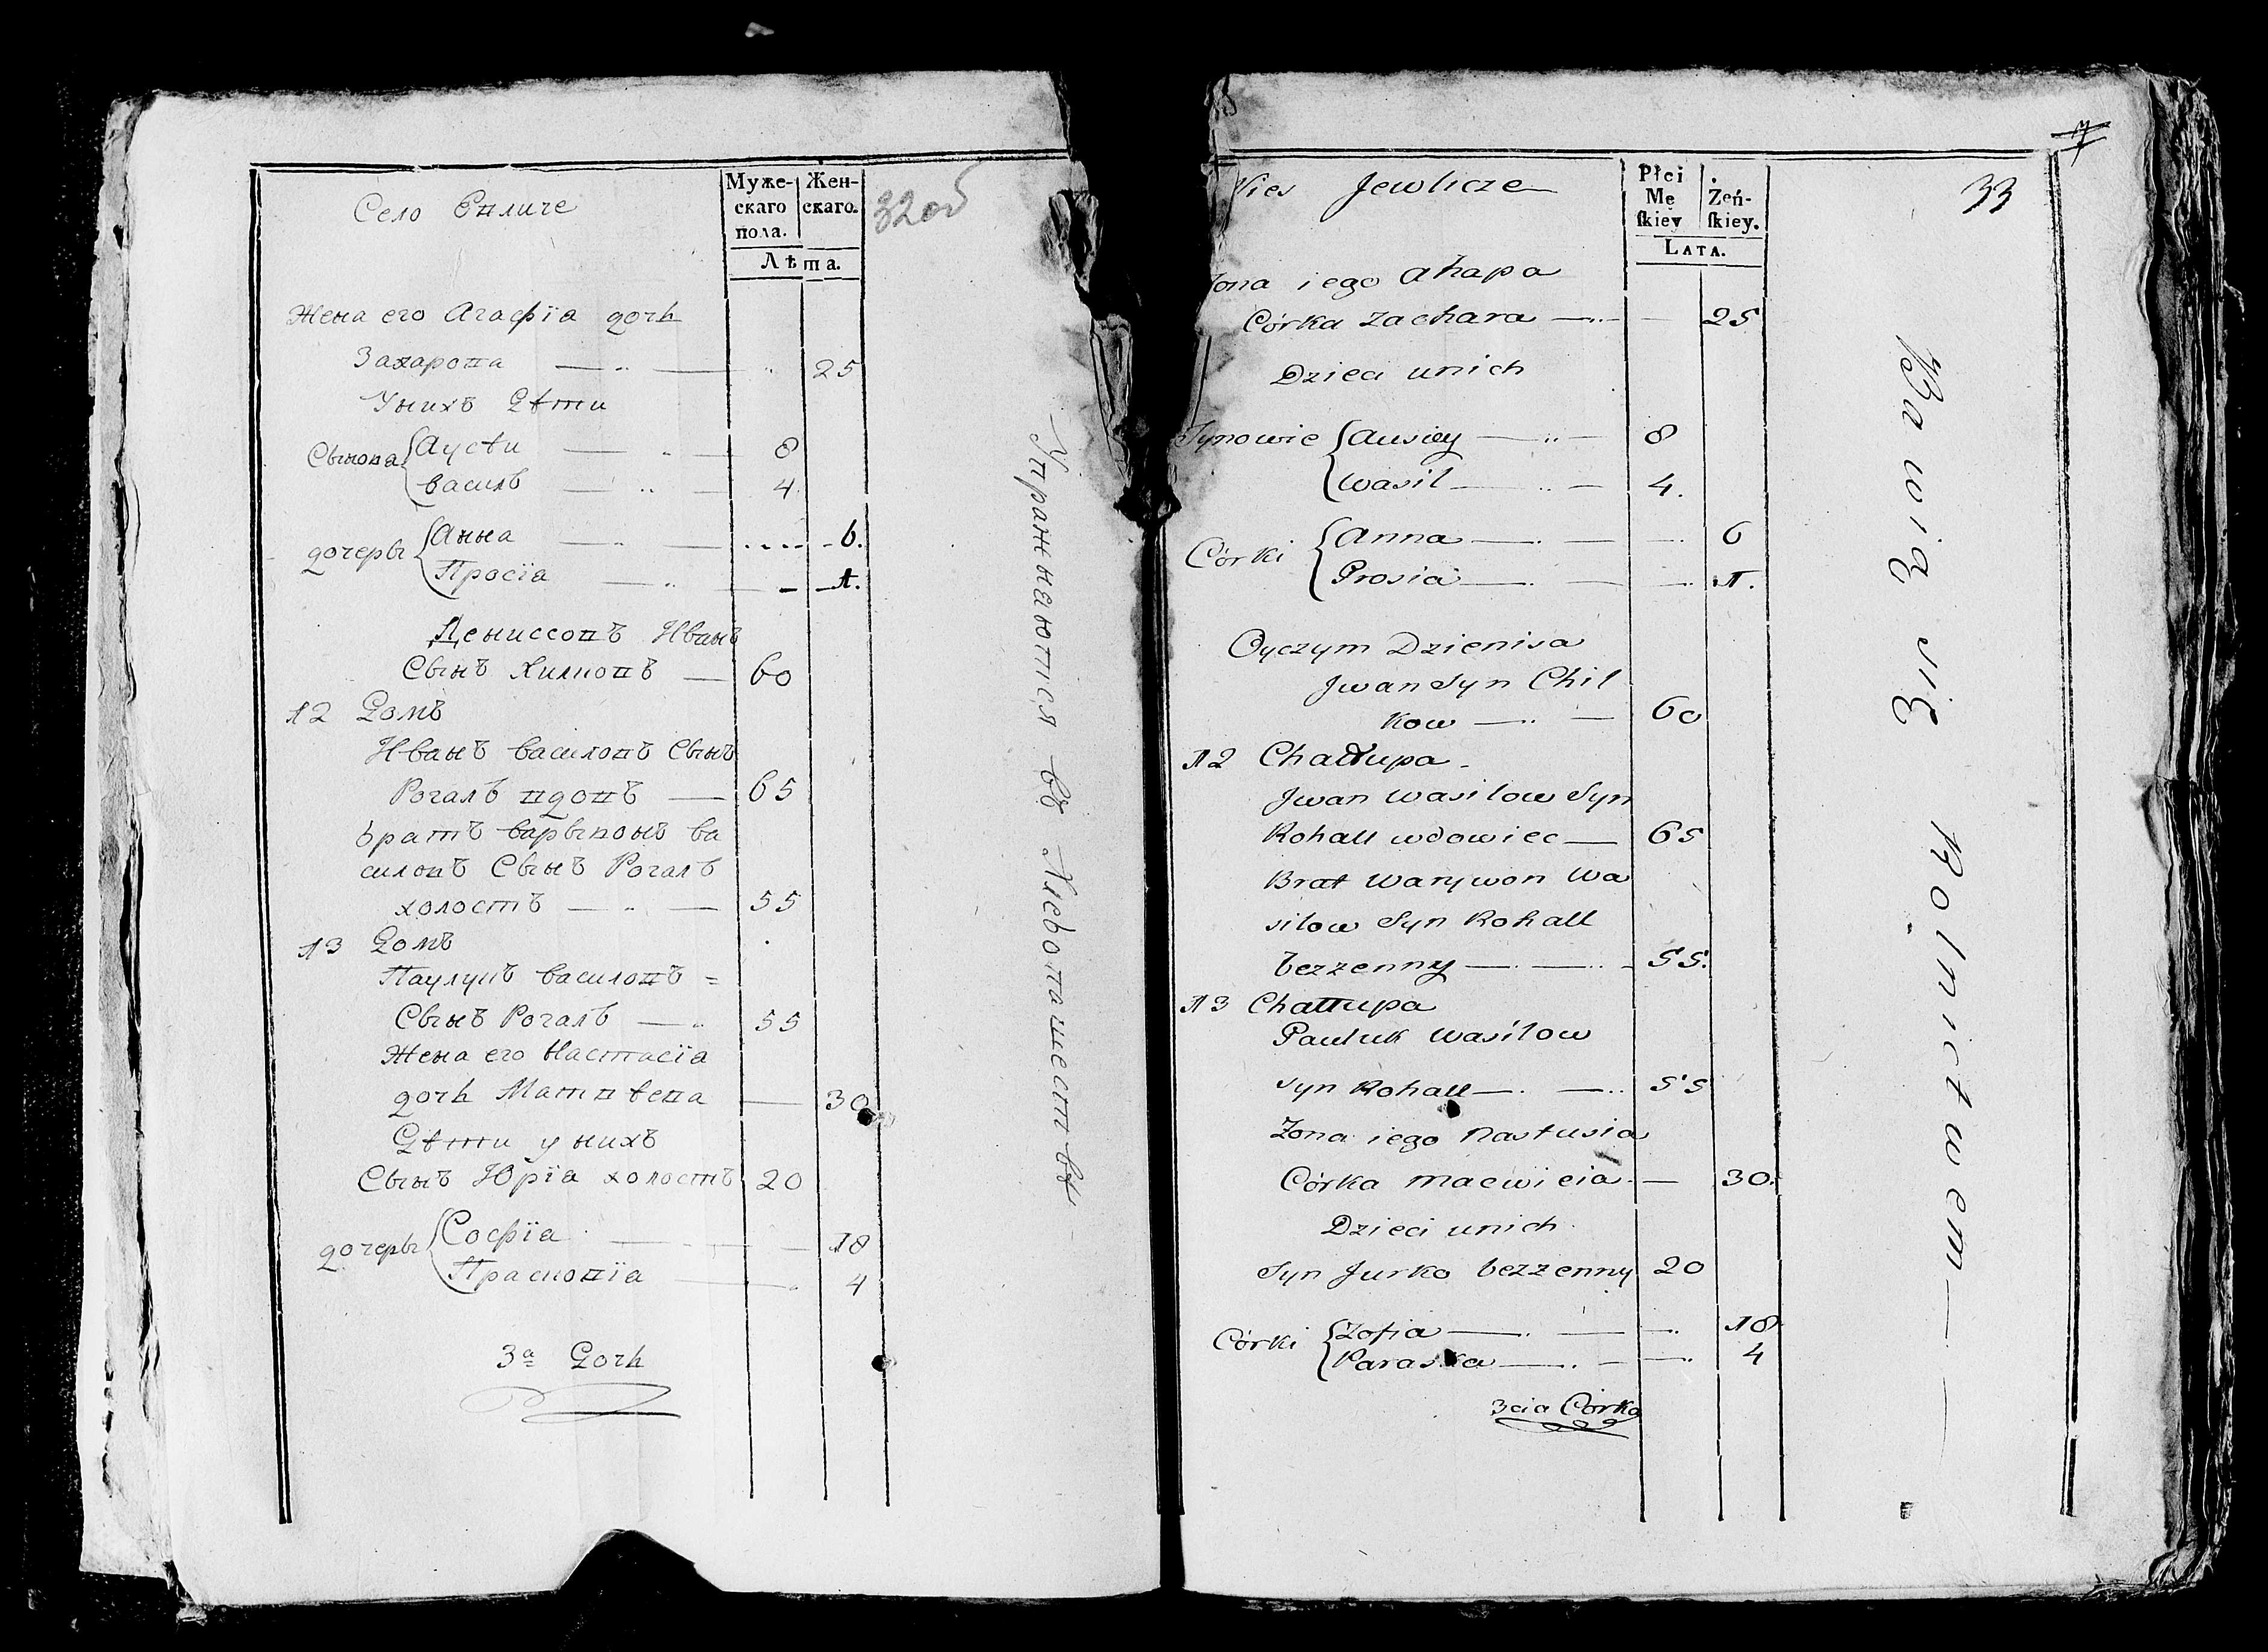 Село Евличе
Муже-
скаго
пола.
Жен-
скаго.
Лѣта.
32 об
Жена его Агафїа дочь
Захарова — „ — „ 25
Унихъ Дѣти
Сынова { Аусѣи — „ — 8
Василь — „ — 4
дочеры { Анна — „ — 6.
Просїа — „ — 1.
Дениссовъ Иванъ
Сынъ Хилковъ — 60
12 Домъ
Иванъ Василовъ Сынъ
Рогалъ вдовъ — 65
братъ Варывонъ Ва
силовъ Сынъ Рогалъ
холостъ — „ — 55
13 Домъ
Паулукъ Василовъ =
Сынъ Рогалъ — „ 55
Жена его Настасїа
дочь Матвѣева — 30
Дѣти у нихъ
Сынъ Юрїа холостъ 20
дочеры { Софїа — „ — 18
Прасковїа — „ 4
3а Дочь
Упражнаются въ Хлебопашествѣ
Wies Jewlicze
Płci
Mę
skiey
Żeń-
skiey.
LATA.
33
Żona iego Ahapa
Córka Zachara — „ — 25
Dzieci unich
Synowie { Ausiey — „ — 8
Wasil — „ — 4.
Córki { Anna — „ — 6
Prosia — „ — 1.
Oyczym Dzienisa
Jwan Syn Chil
kow — „ — 60
12 Chałłupa
Jwan Wasilow Syn
Rohall wdowiec — 65
Brat Warywon Wa
silow Syn Rohall
bezzenny — „ — 55.
13 Chałłupa
Pauluk Wasilow
Syn Rohall — „ — 55
Zona iego Nastusia
Córka Macwieia — 30.
Dzieci unich
Syn Jurko bezzenny 20
Córki { Zofia — „ — 18
Paraska — „ — 4
3cia Córka
Bawią się Rolnictwem —